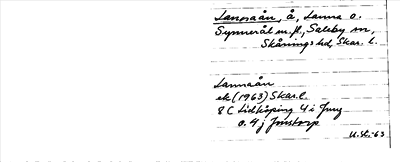 Lannaån, å, Lanna o.
Synnerål m. fl., Saleby sn,
Skånings hd, Skar. l.
Lannaån
ek (1963) Skar. l.
8 C Lidköping 4 i Jung
o. 4 j Jinstorp